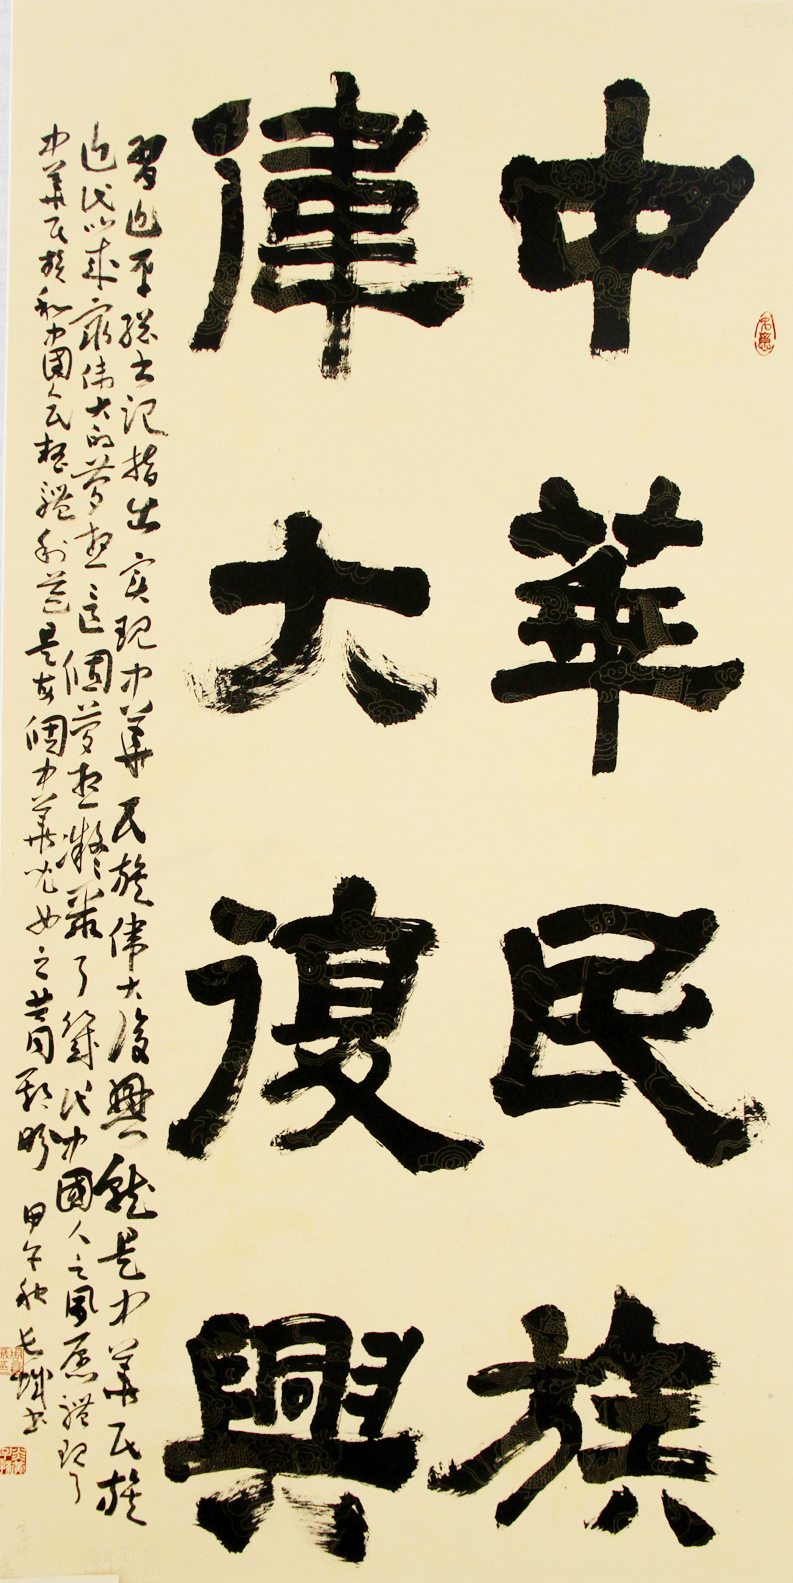 中華民族
偉大復興
習近平總书记指出实现中華民族伟大復興就是中華民族
近代以來最伟大的夢想這個夢想凝聚了幾代中國人之夙愿體现了
中華民族和中國人民整體利益是每個中華兒女之共同期盼 甲午秋 長城书